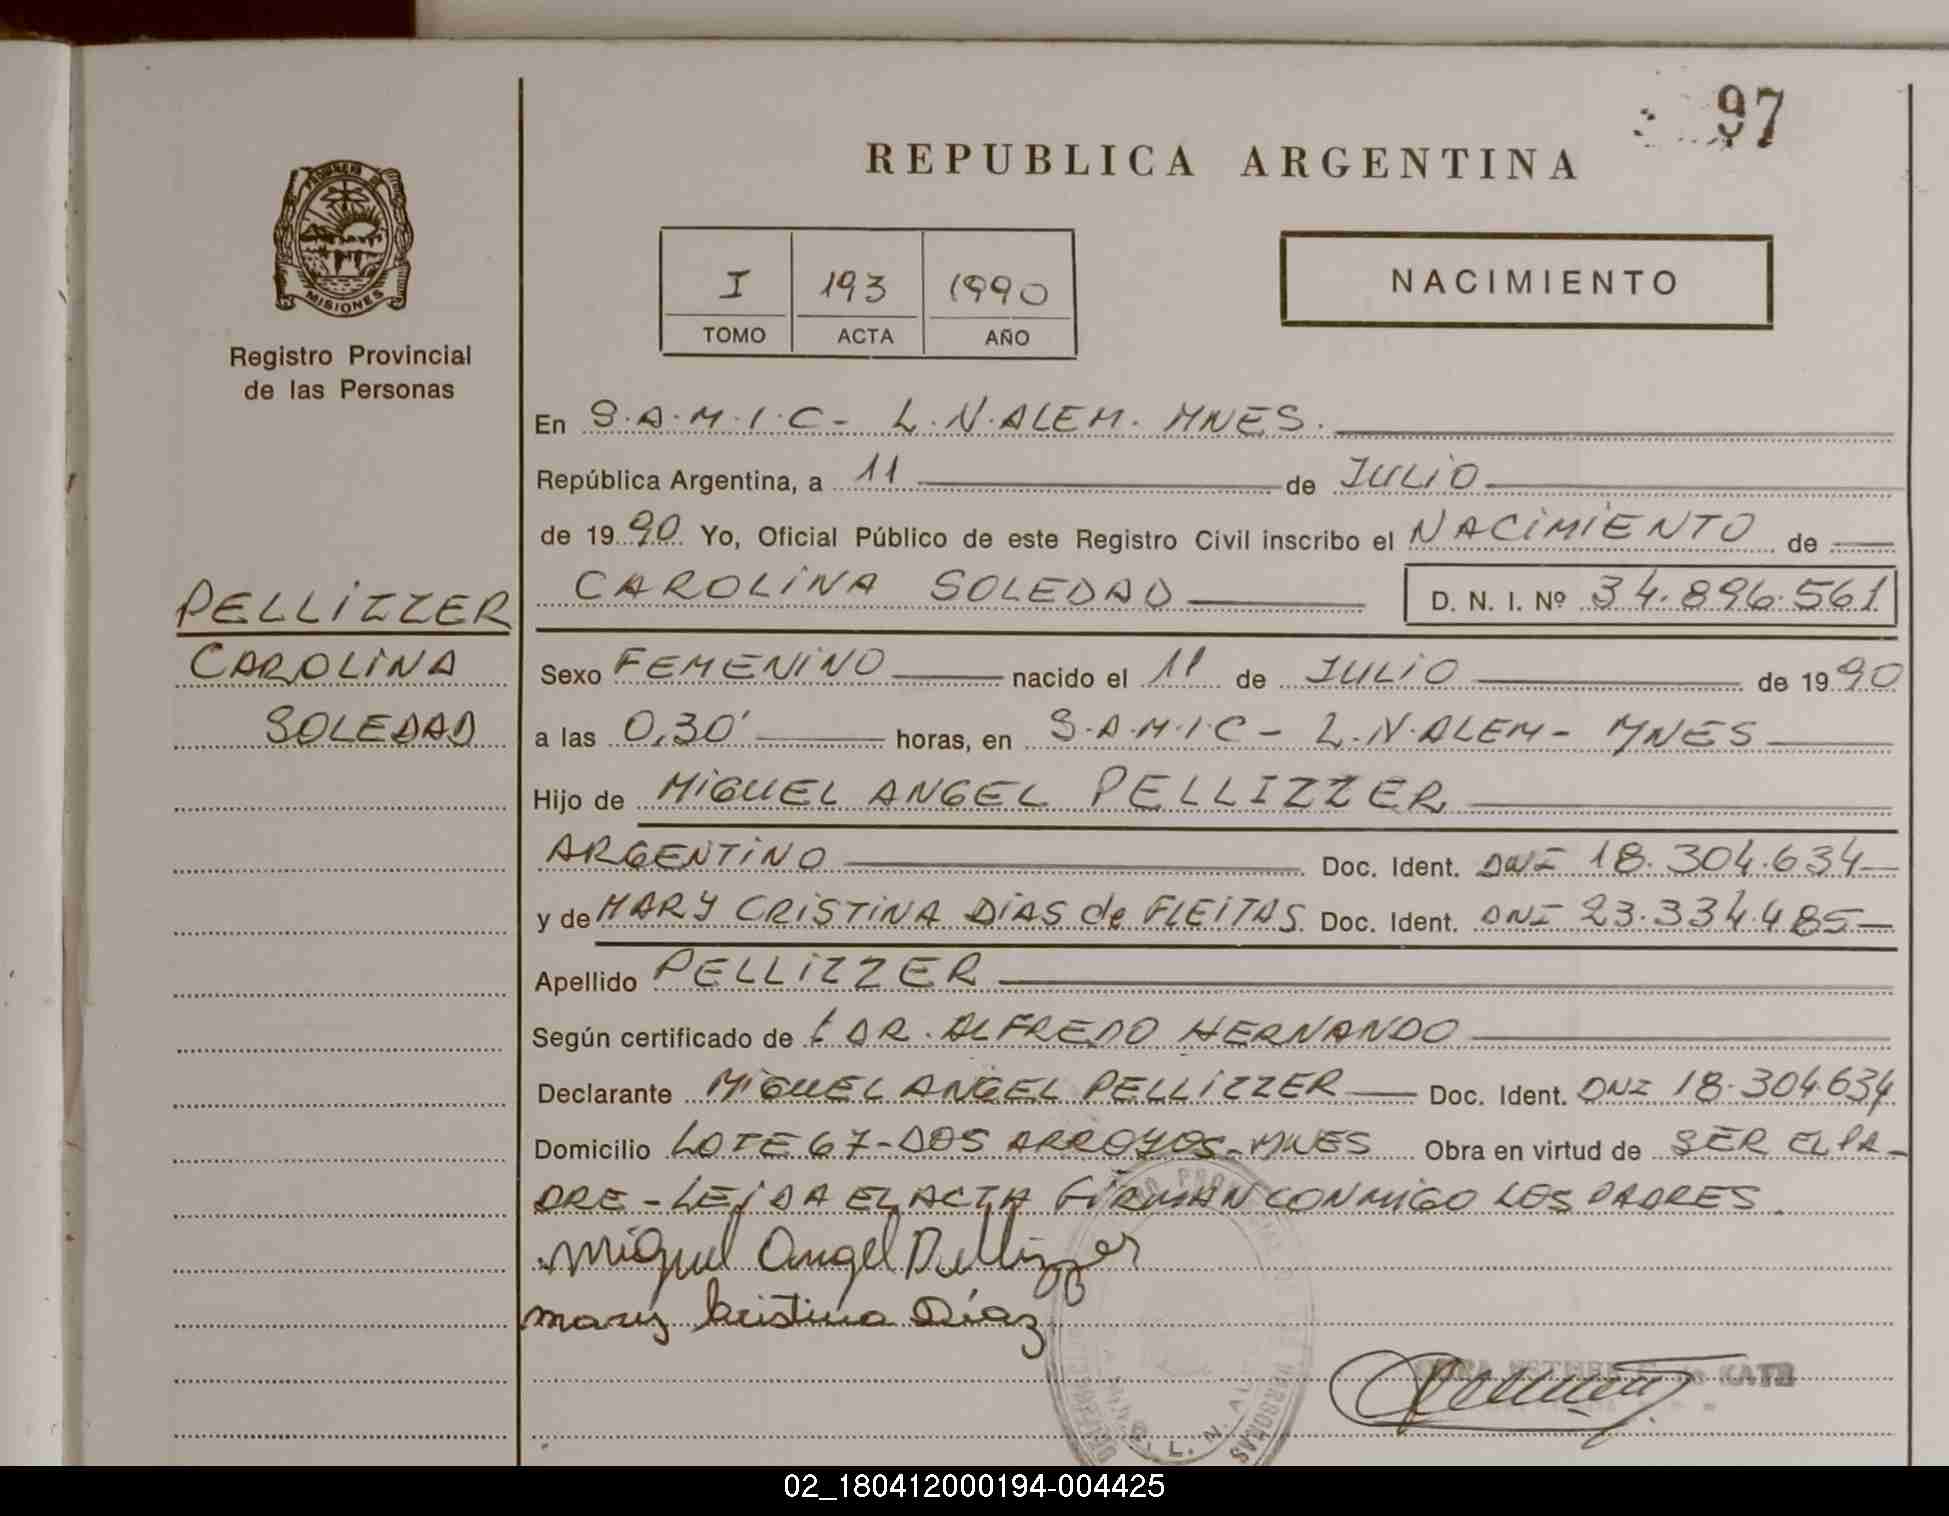 97
REPUBLICA ARGENTINA
PROVINCIA DE
MISIONES
Registro Provincial
de las Personas
I 193 1990
TOMO ACTA AÑO
NACIMIENTO
En S.A.M.I.C- L.N.ALEM. MNES.
República Argentina, a 11 de JULIO
de 1990 Yo, Oficial Público de este Registro Civil inscribo el NACIMIENTO de
CAROLINA SOLEDAD D. N. I. Nº 34.896.561
PELLIZZER
CAROLINA
SOLEDAD
Sexo FEMENINO nacido el 11 de JULIO de 1990
a las 0,30' horas, en S.A.M.I.C- L.N.ALEM- MNES
Hijo de MIGUEL ANGEL PELLIZZER
ARGENTINO Doc. Ident. DNI 18.304.634
y de MARY CRISTINA DIAS de FLEITAS Doc. Ident. DNI 23.334.485
Apellido PELLIZZER
Según certificado de DR. ALFREDO HERNANDO
Declarante MIGUEL ANGEL PELLIZZER Doc. Ident. DNI 18.304.634
Domicilio LOTE 67-DOS ARROYOS-MNES Obra en virtud de SER EL PA-
DRE - LEIDA EL ACTA FIRMAN CONMIGO LOS PADRES.
Miguel Angel Pellizzer
Mary Cristina Díaz
L. N. de KATB
02_180412000194-004425